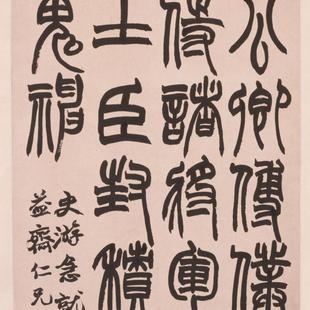 公卿傅僕
侍諸將軍
土臣封積
鬼神
史游急就
益齋仁兄